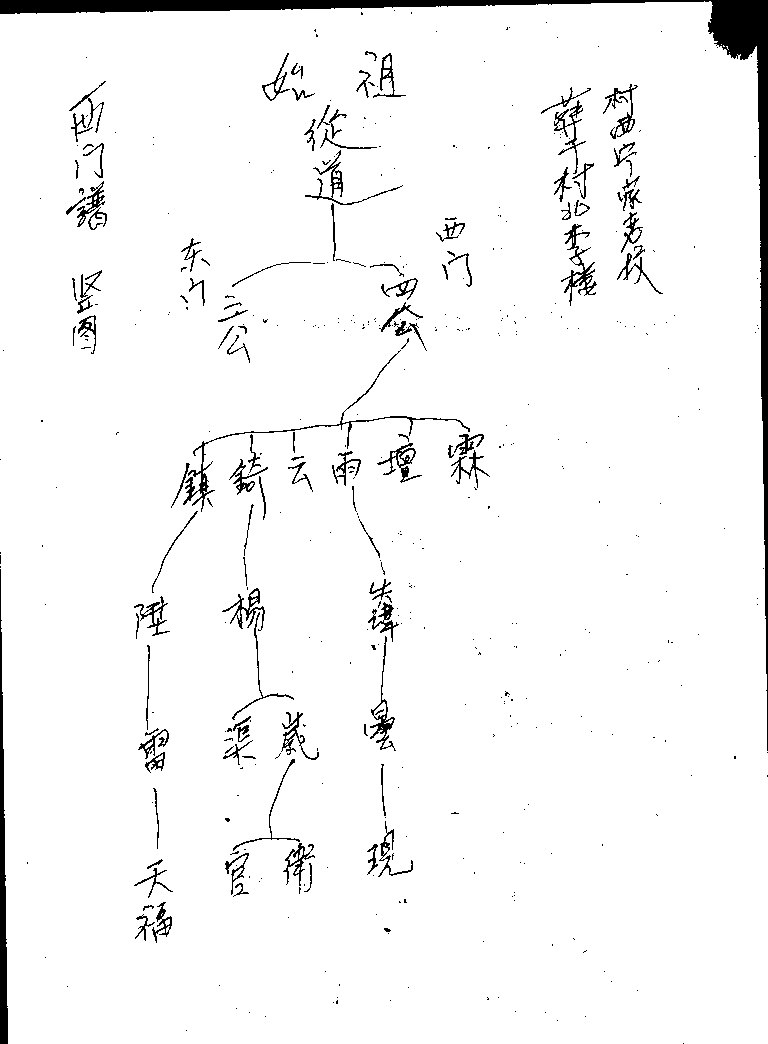 西门譜 竖图
始祖
從道
村西宁家老坟
薛干村北李樓
东门
西门
三公
四公
鎮 錡 云 雨 壇 霖
陞 楊
雷 渠 嵗 曇
官 衛 現
天福